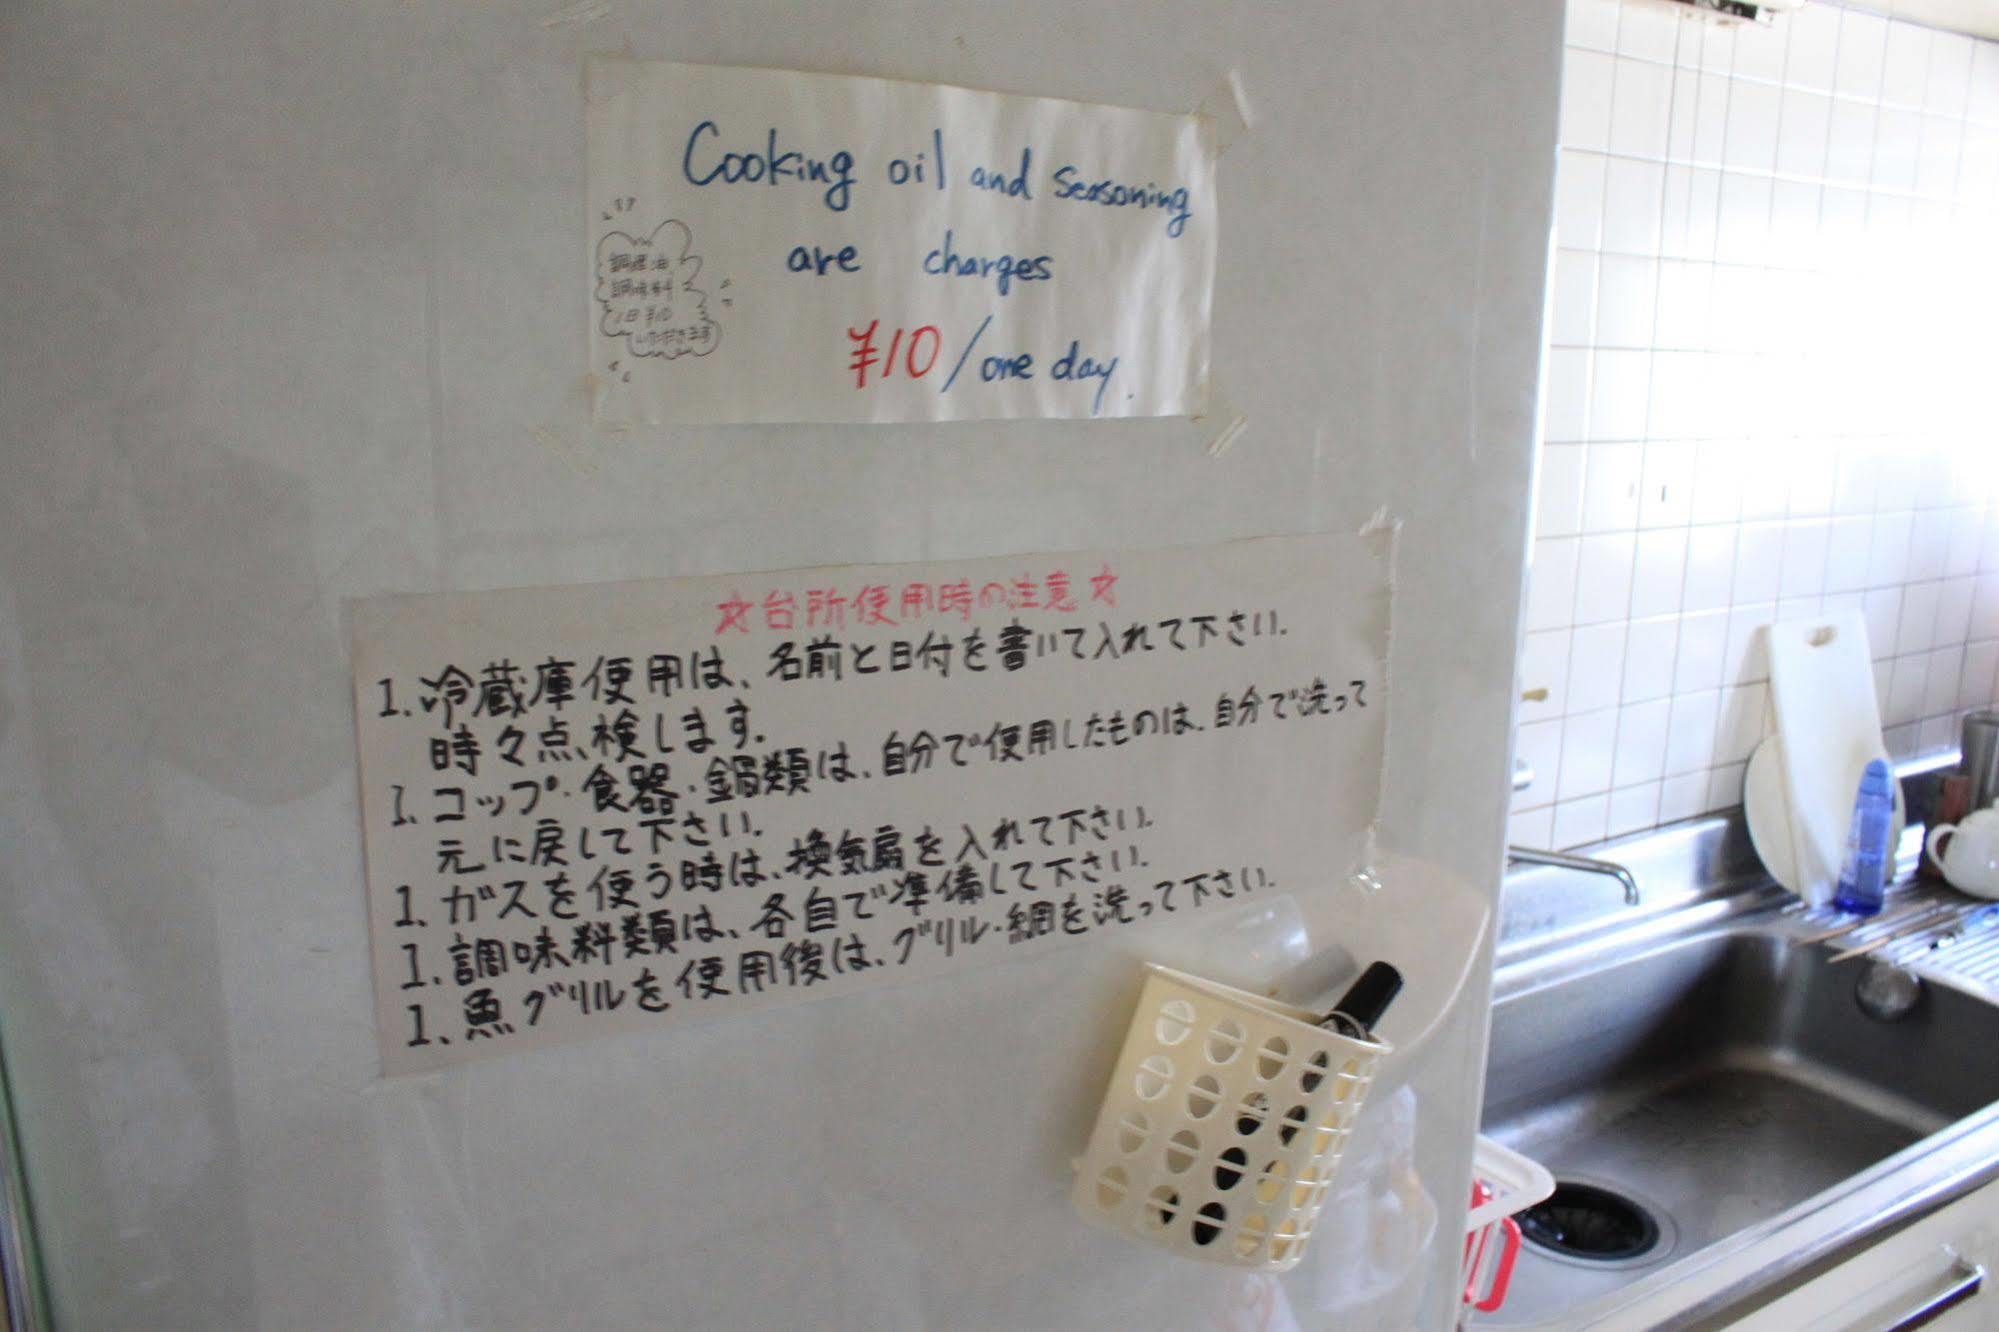 Cooking oil and seasoning
are charges
¥10/one day.
調理油
調味料
1日¥10
いただきます
☆台所使用時の注意☆
1.冷蔵庫使用は、名前と日付を書いて入れて下さい.
時々点検します.
1.コップ・食器・鍋類は、自分で使用したものは、自分で洗って
元に戻して下さい.
1.ガスを使う時は、換気扇を入れて下さい.
1.調味料類は、各自で準備して下さい.
1.魚グリルを使用後は、グリル・網を洗って下さい.